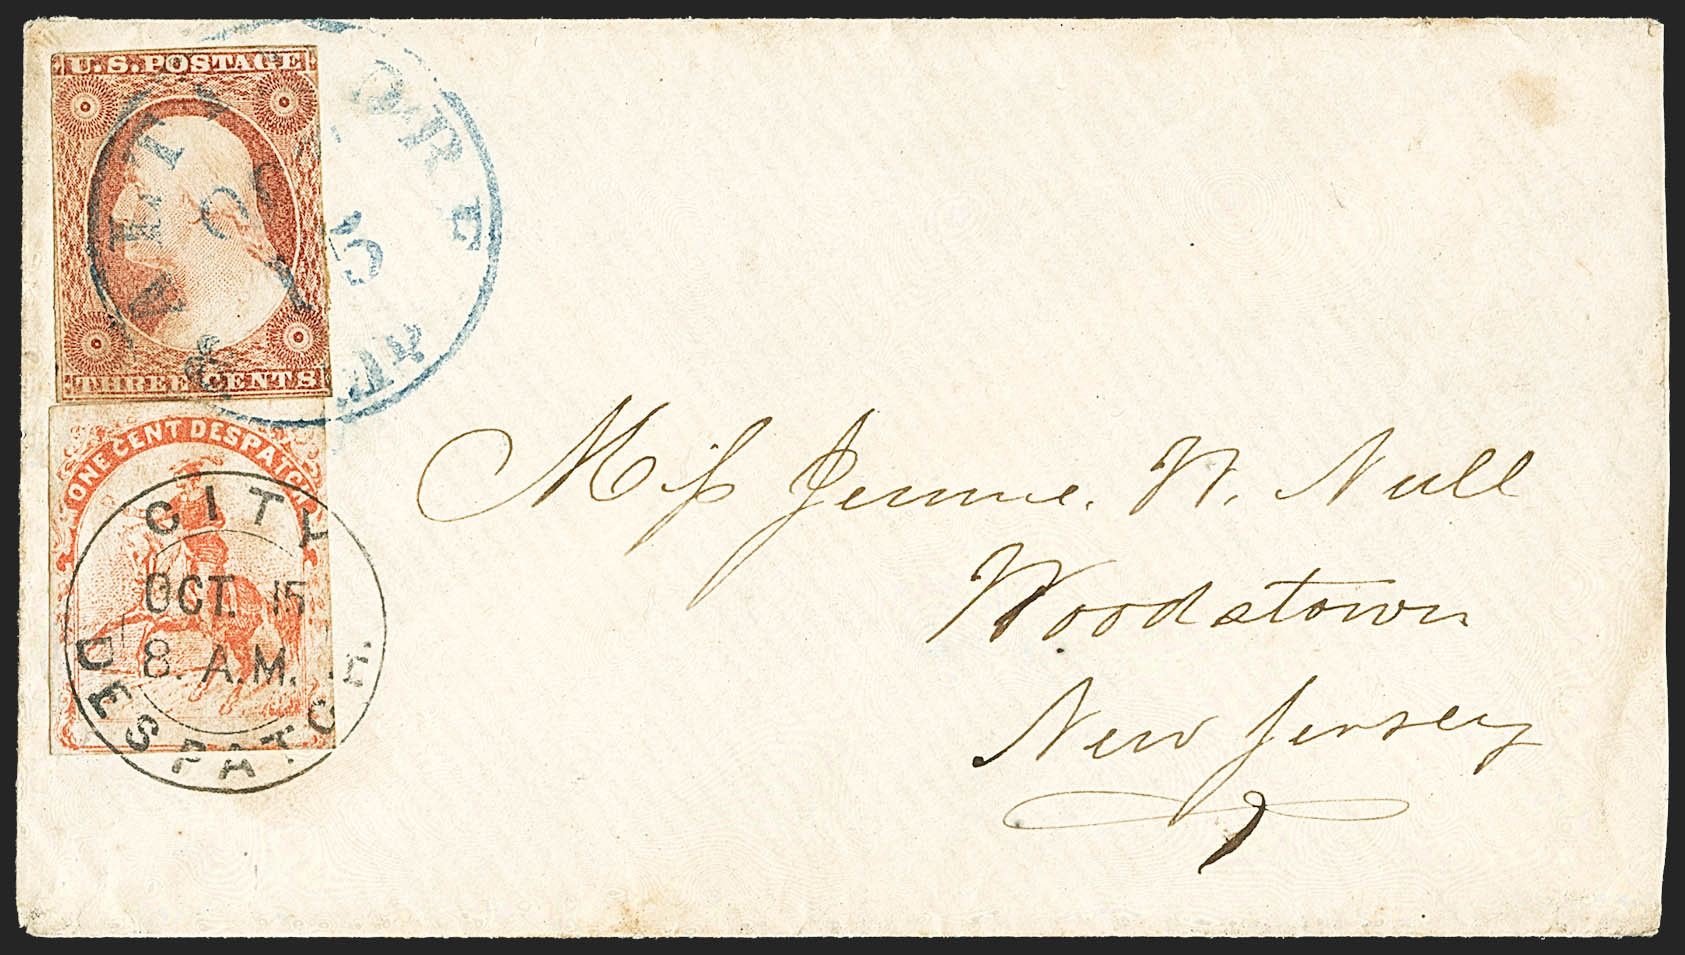 U.S. POSTAGE
THREE CENTS
BALTIMORE
OCT
15
ONE CENT DESPATCH
CITY
OCT. 15
8. A.M.
DESPATCH
Miss Jennie. N. Null
Woodstown
New Jersey